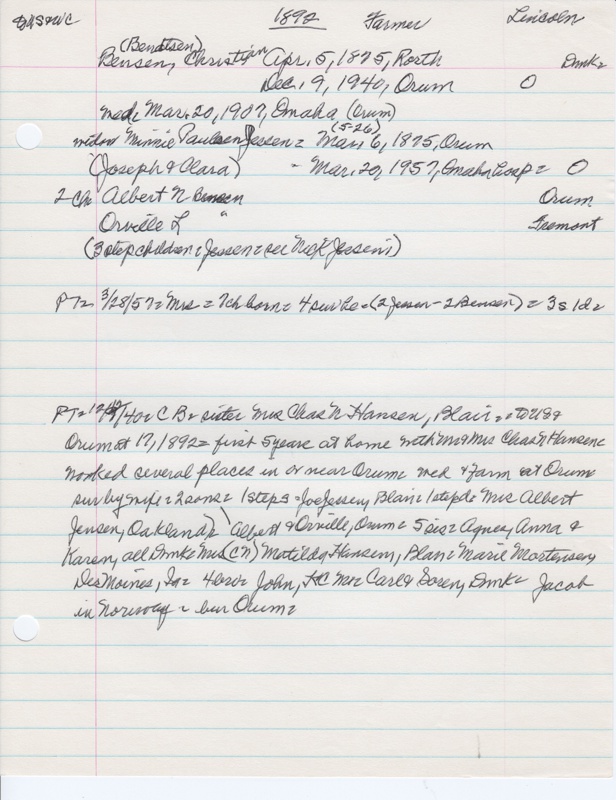 1892 Farmer Lincoln
(Bendtsen)
Bensen, Christian Apr. 5, 1875, Rorth Dmk=
Dec. 9, 1940, Orum O
wed, Mar. 20, 1907, Omaha (Orum)
(5-26)
widow Minnie Paulsen Jessen = Mar. 6, 1875, Orum
(Joseph & Clara) - Mar. 20, 1957, Omaha Hosp = O
2 ch Albert N Bensen Orum
Orville L " Fremont
(3 stepchildren = Jessen = see Nick Jessen's)
PT= 3/28/57= Mrs = 7 ch born = 4 survive = (2 Jessen - 2 Bensen) = 3s 1d=
PT= /40= C B= sister Mrs Chas N Hansen, Blair = to US &
Orum at 17, 1892= first 5 years at home with Mr & Mrs Chas N Hansen=
worked several places in or near Orum= wed & farm at Orum
sur by wife = 2 sons = 1 steps = Joe Jessen, Blair= 1 stepd= Mrs Albert
Jensen, Oakland)= Albert & Orville, Orum = 5 sis= Agnes, Anna &
Karen, all Dmk= Mrs (CN) Matilda Hansen, Blair= Marie Mortensen,
Des Moines, Ia= 4 bro= John, KC Mo= Carl & Soren, Dmk= Jacob
in Norway = bur Orum=